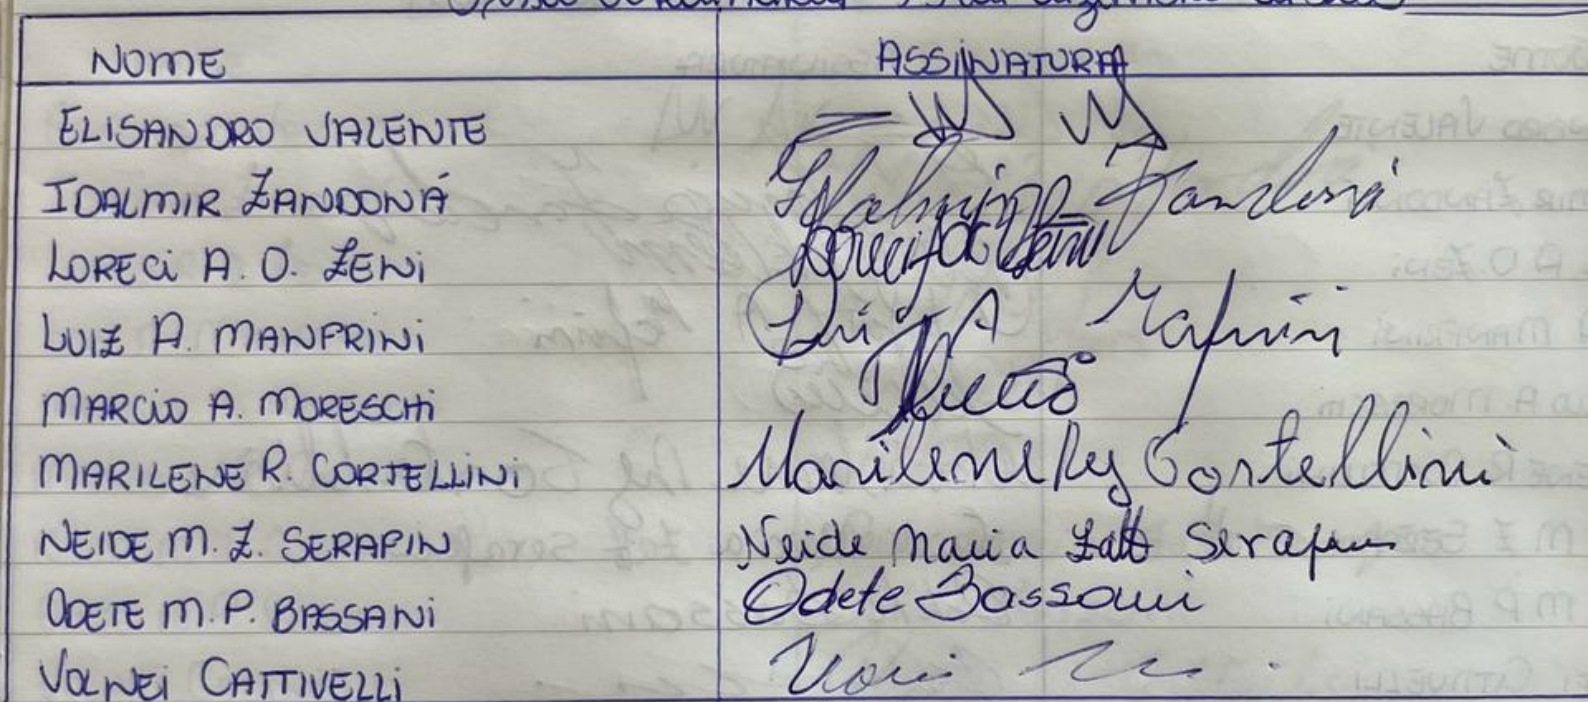 NOME ASSINATURA
ELISANDRO VALENTE
IDALMIR ZANDONÁ Idalmir Zandoná
LORECI A. O. ZENI Loreci A O Zeni
LUIZ A. MANFRINI Luiz A Mafrini
MARCIO A. MORESCHI
MARILENE R. CORTELLINI Marilene Ry Cortellini
NEIDE M. Z. SERAFIN Neide Maria Zatt Serafin
ODETE M. P. BASSANI Odete Bassani
VOLNEI CATTIVELLI